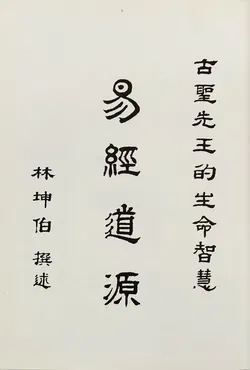 古聖先王的生命智慧
易經道源
林坤伯 撰述